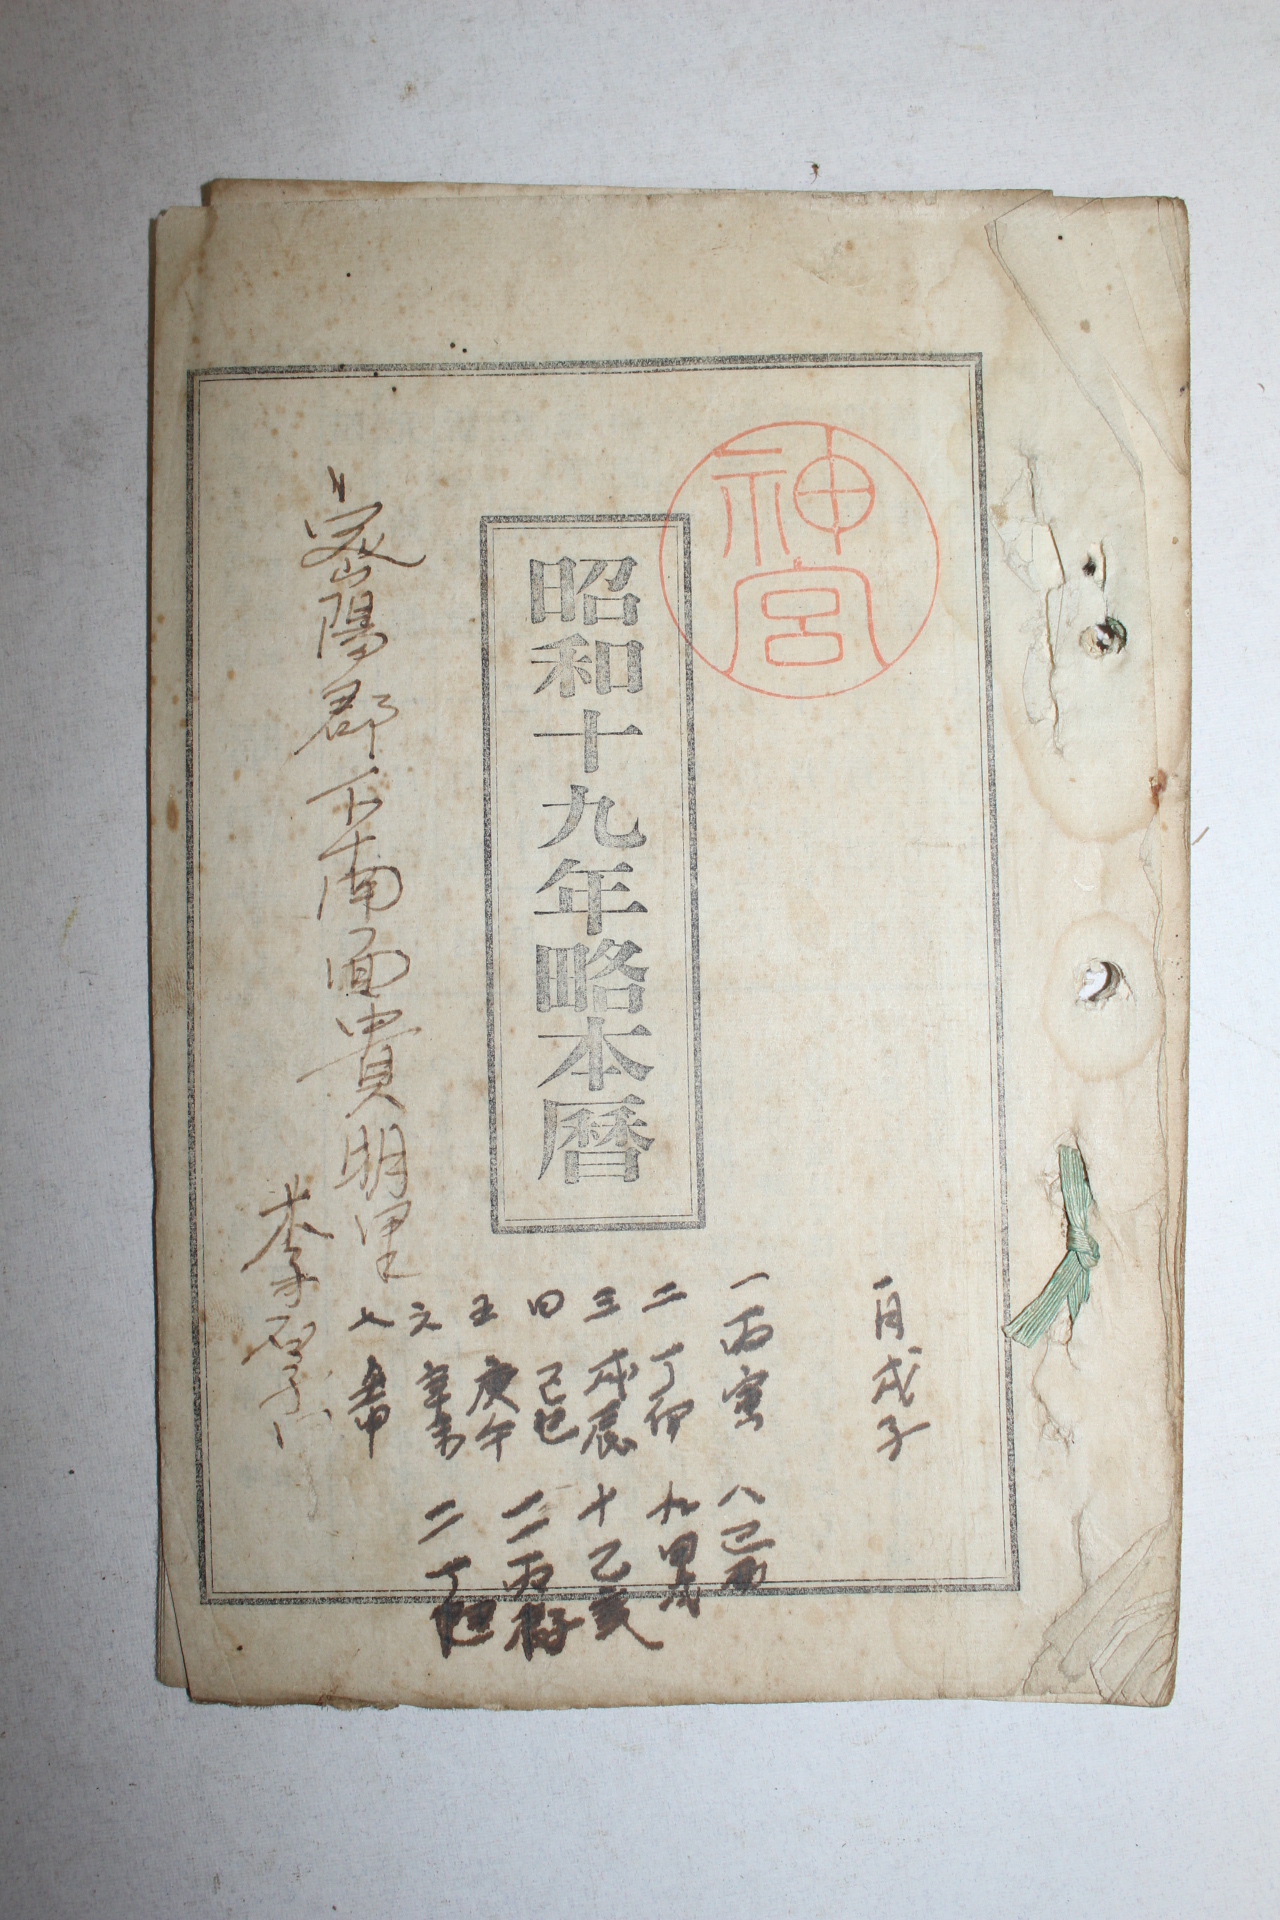 神宮
昭和十九年略本暦
一月戊子
一 丙寅
二 丁卯
三 戊辰
四 己巳
五 庚午
六 辛未
七 壬申
八
九 甲戌
十 乙亥
十一 丙子
二 丁丑
密陽郡下南面貴明里
李